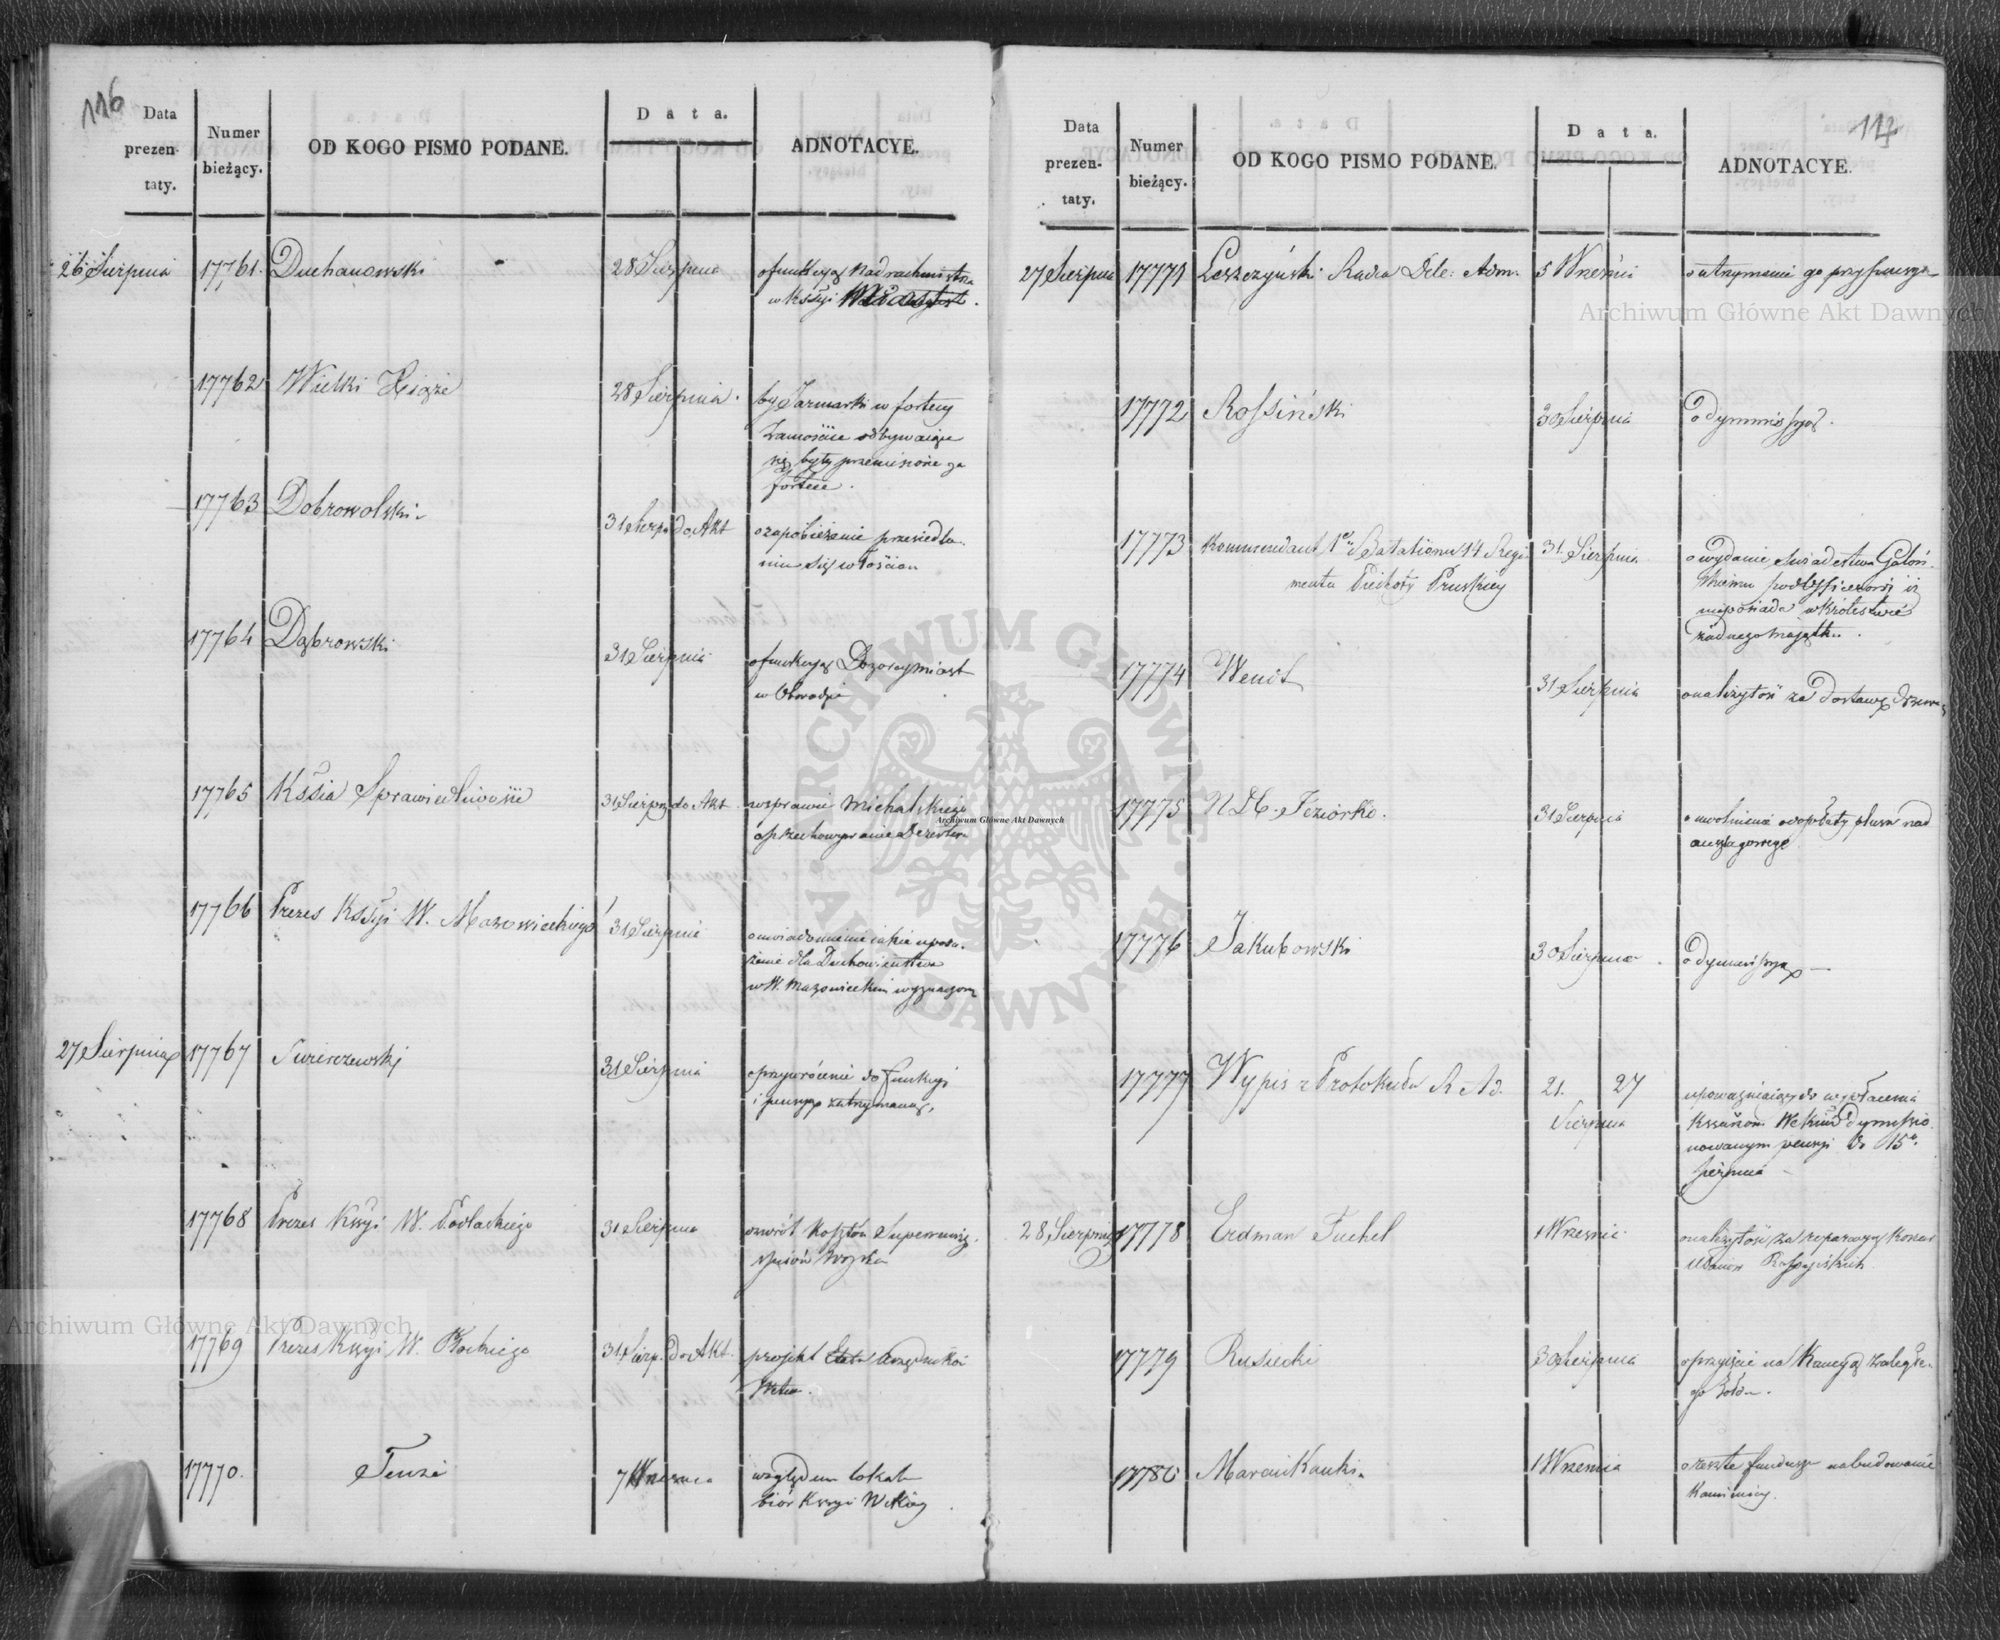 116
Data prezen- taty.
Numer bieżący.
OD KOGO PISMO PODANE.
Data.
ADNOTACYE.
26 Sierpnia 17761. Duchanowski 28 Sierpnia o funkcyą Nadrachmistrza
w Kssyi
17762 Wielki Xiąże 28 Sierpnia. by Jarmarki w fortecy
Zamoście odbywaiące
się były przeniesione za
fortece.
17763 Dobrowolski 31 Sierp. do Akt o zapobieżenie przesiedla-
niu się włościan
17764 Dąbrowski 31 Sierpnia o funkcyą Dozorcy miast
w Obwodzie
17765 Kssia Sprawiedliwości 31 Sierp. do Akt. w sprawie Michalskiego
o przechowywanie Dezertera
17766 Prezes Kssyi W. Mazowieckiego 31 Sierpnia o uwiadomienie iakie
dla Duchowieństwa
w W. Mazowieckim
27 Sierpnia 17767 Swierczewski 31 Sierpnia o przywrócenie do funkcyi
i pensyą zatrzymaną,
17768 Prezes Kssyi W. Podlaskiego 31 Sierpnia o zwrót kosztów
spisów Woyska
17769 Prezes Kssyi W. Płockiego 31 Sierp. do Akt. projekt Etatu
17770. Tenże 7 Wrzesnia względem lokalu
biór Kssyi W.
Archiwum Główne Akt Dawnych
117
Data prezen- taty.
Numer bieżący.
OD KOGO PISMO PODANE.
Data.
ADNOTACYE.
27 Sierpnia 17771 Leszczyński Radca Dele: Adm. 5 Wrześni o utrzymanie go przy
Archiwum Główne Akt Dawnych
17772 Rossiński 30 Sierpnia o dymmissyą.
17773 Kommendant 1e Batalionu 14 Regi- 31. Sierpnia o wydanie świadectwa
mentu Piechoty Pruskiey podofficerowi iż
nieposiada w Królestwie
żadnego maiątku.
17774 Wendt 31 Sierpnia o należytość za dostawę drzewa
17775 N Db. Jeziorko. 31 Sierpnia o uwolnienie od opłaty plusu nad
anszlagowego
17776 Jakubowski 30 Sierpnia o dymissyą
17777 Wypis z Protokułu R Ad. 21. 27 Sierpnia upoważniaiący do wypłacenia
dymissio-
nowanym pensyi do 15o
Sierpnia
28 Sierpnia 17778 Erdman Fuchel 1 Wrzesnia o należytość za reparacyą Koszar
Ułanów Rossyiskich
17779 Rusiecki 30 Sierpnia o przyięcie na Kaucyą zaległe-
go żołdu.
17780 1 Wrzesnia o resztę funduszu na budowanie
Kamienicy.
ARCHIWUM GŁÓWNE AKT DAWNYCH
Archiwum Główne Akt Dawnych